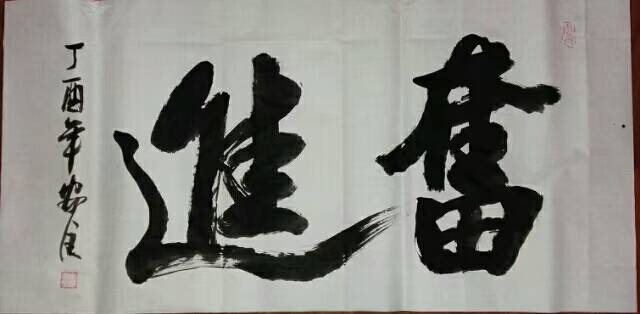 奮進
丁酉年